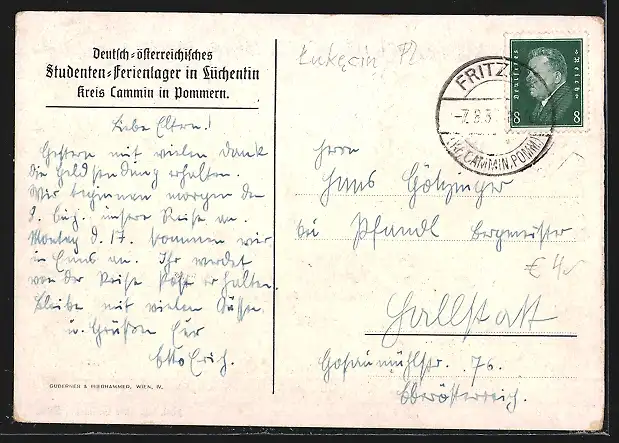 Deutsch-österreichisches
Studenten-Ferienlager in Lüchentin
Kreis Cammin in Pommern.
Liebe Eltern!
Gestern mit vielen Dank
die Geldsendung erhalten.
Wir beginnen morgen den
8. Aug. unsere Reise an.
Montag d. 17. kommen wir
in Enns an. Ihr werdet
von der Reise Post erhalten.
Bleibe mit vielen Küssen
u. Grüßen Euer
Otto Erich.
GUBERNER & HIERHAMMER, WIEN, IV.
Łukęcin Pl
FRITZ
-7.8.3
(KR. CAMMIN, POMM.)
Deutsches Reich
8 8
Herrn
Hans Götzinger
bei Pfandl Bergmeister
€ 4,-
Hallstatt
Gosaumühlstr. 76.
Oberösterreich.